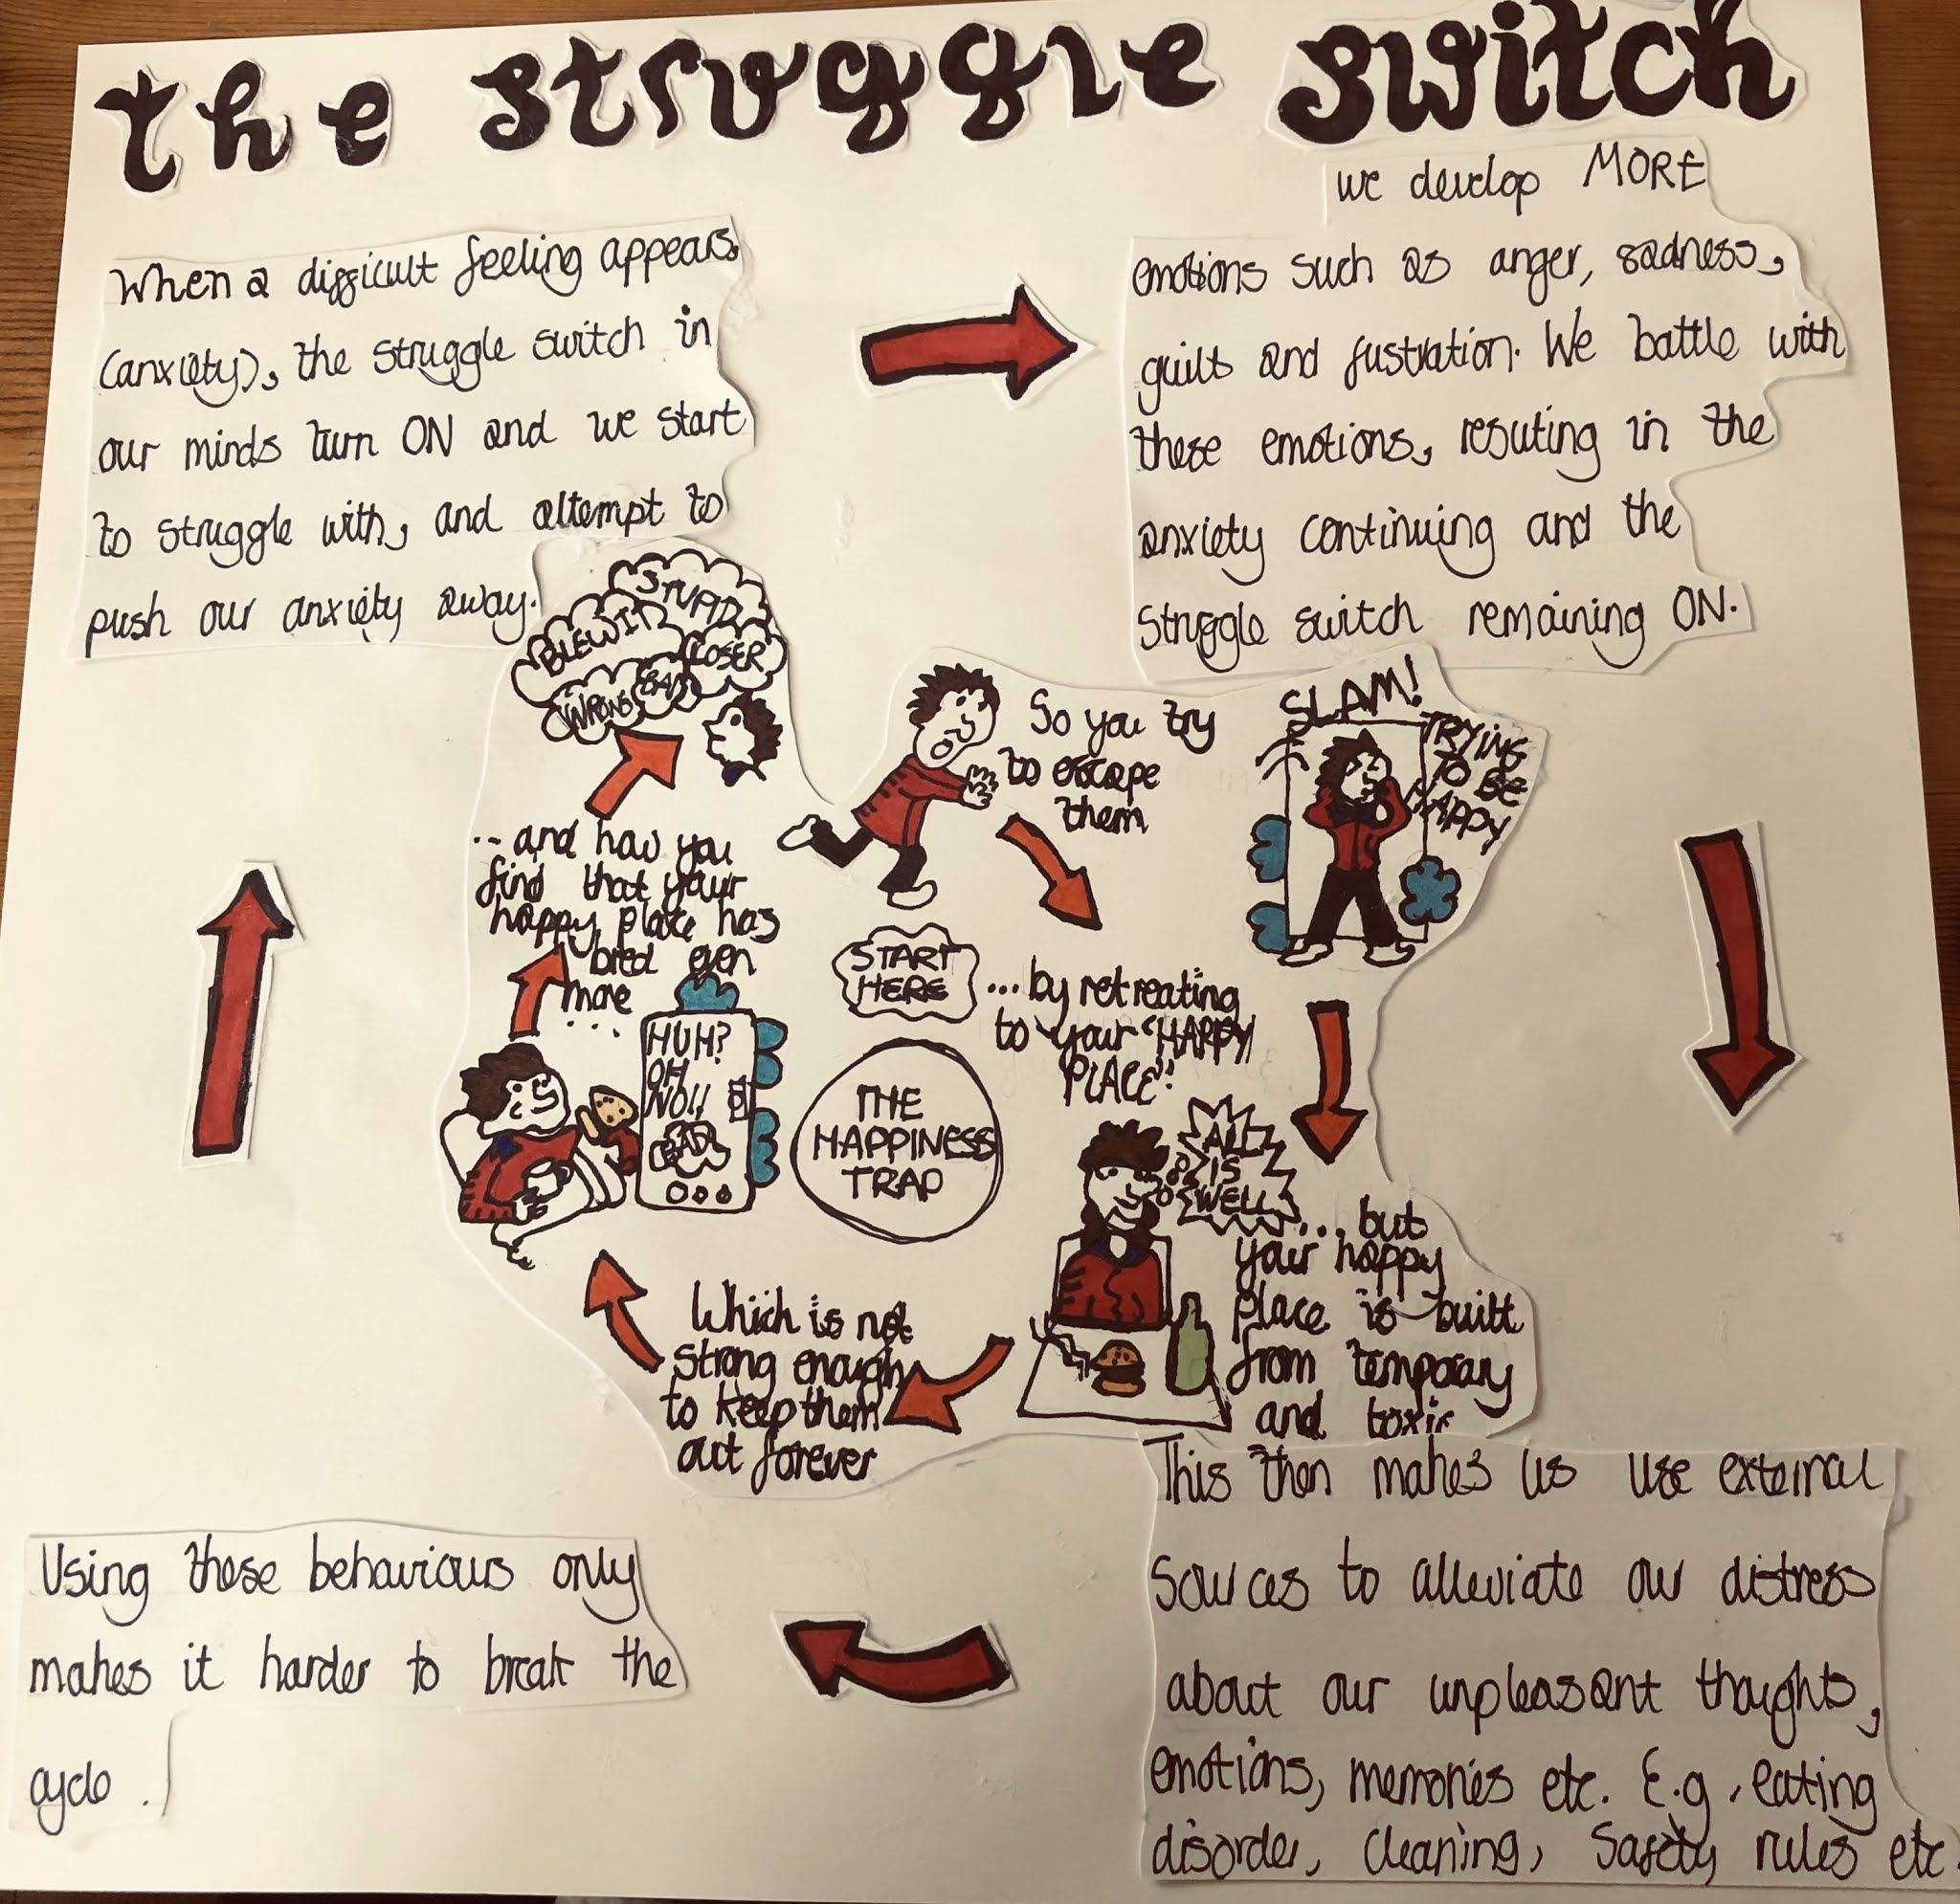 the struggle switch
When a difficult feeling appears
(anxiety), the struggle switch in
our minds turn ON and we start
to struggle with, and attempt to
push our anxiety away.
we develop MORE
emotions such as anger, sadness,
guilt and fustration. We battle with
these emotions, resuting in the
anxiety continuing and the
struggle switch remaining ON.
STUPID
BLEW IT
LOSER
BAD
WRONG
So you try
to escape
them
SLAM!
TRYING
TO BE
HAPPY
START
HERE
...by retreating
to your "HAPPY
PLACE"
ALL
IS
WELL
... but
your happy
place is built
from temporary
and toxic
Which is not
strong enough
to keep them
out forever
HUH?
OH
NO!!
BAD
... and how you
find that your
happy place has
bred even
more
...
THE
HAPPINESS
TRAP
This then makes us use external
sources to alleviate our distress
about our unpleasant thoughts,
emotions, memories etc. E.g. eating
disorder, cleaning, safety rules etc.
Using these behaviours only
makes it harder to break the
cycle.